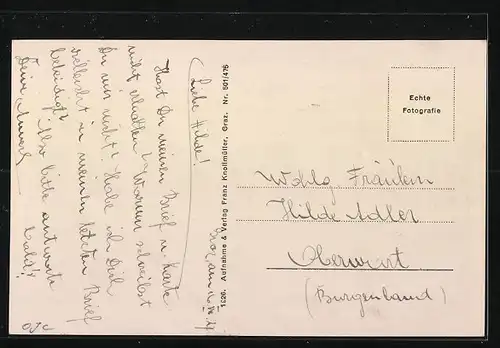 Liebe Hilde!
Hast Du meinen Brief u. Karte
nicht erhalten? Warum schreibst
Du mir nicht? Habe ich Dich
vielleicht in meinem letzten Brief
beleidigt? Also bitte antworte
bald!
Deine
1326. Aufnahme & Verlag Franz Knollmüller, Graz. Nr. 501/476
Echte
Fotografie
Wohlg. Fräulein
Hilde Adler
Oberwart
(Burgenland)